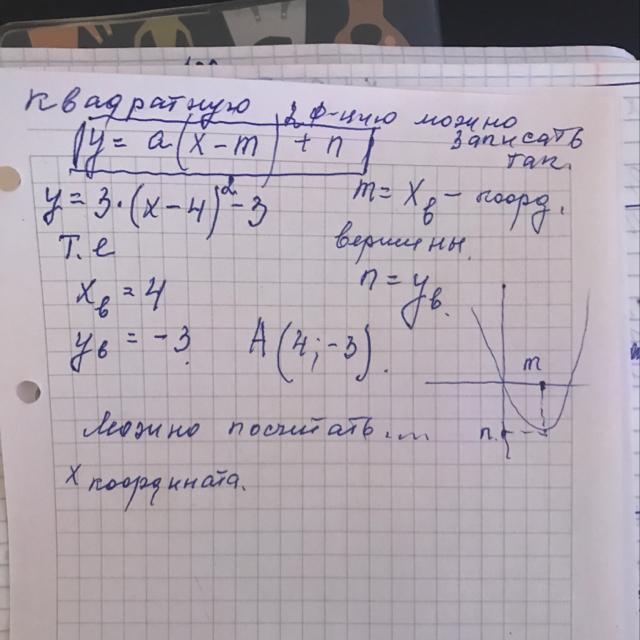 квадратную ф-цию можно
записать
так.
y = a(x - m)² + n
y = 3·(x - 4)² - 3
m = Xв - коорд.
вершины.
т.е
n = yв.
xв = 4
yв = -3.
A(4; -3).
m
n
Можно посчитать...
x координата.